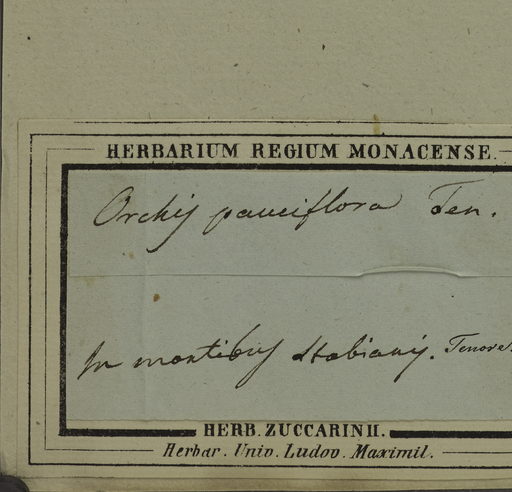 HERBARIUM REGIUM MONACENSE.
Orchis pauciflora Ten.
In montibus Stabianis. Tenore.
HERB. ZUCCARINII.
Herbar. Univ. Ludov. Maximil.